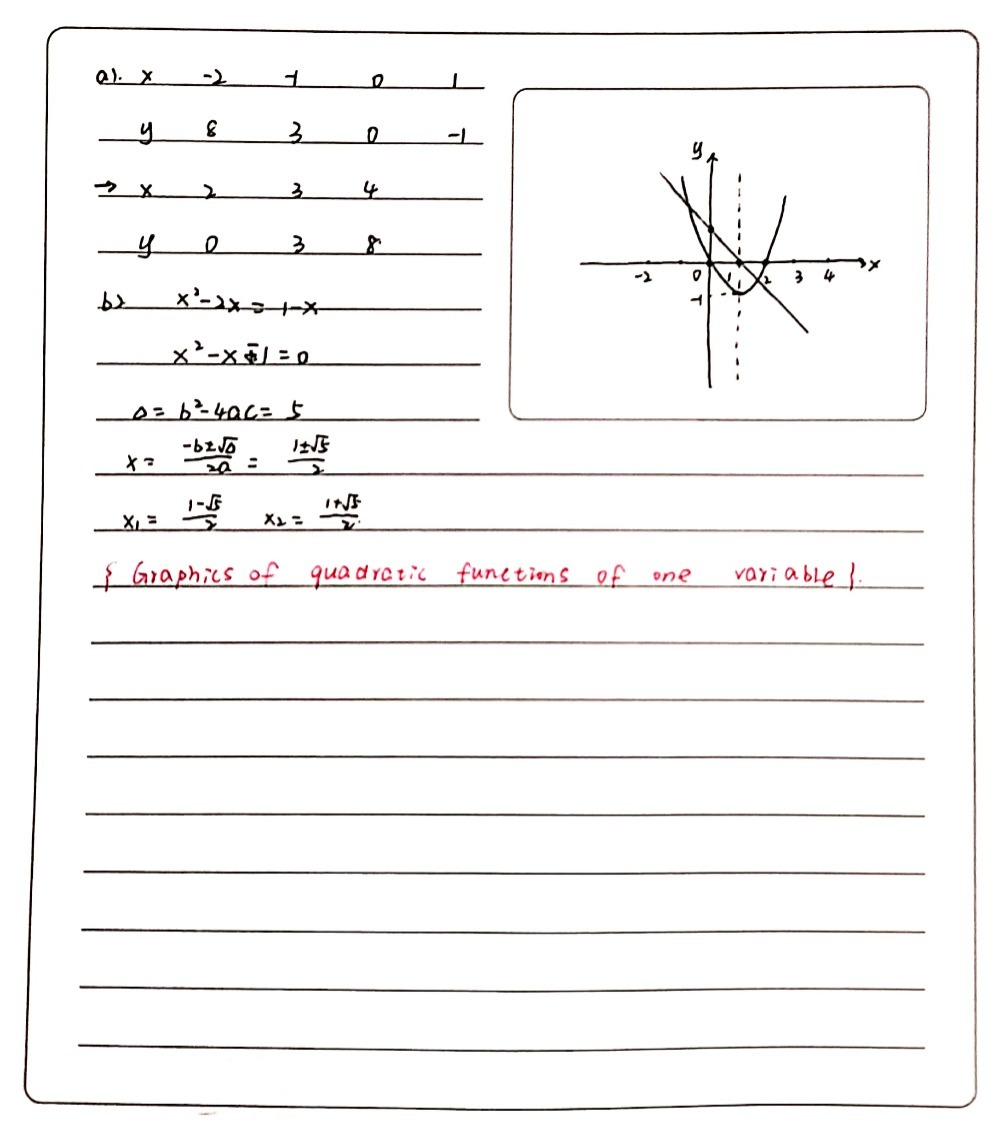 a). x -2 -1 0 1
y 8 3 0 -1
→ x 2 3 4
y 0 3 8
b) x²-2x = 1-x
x²-x-1=0
Δ= b²-4ac= 5
x= (-b±√Δ)/2a = (1±√5)/2
x₁= (1-√5)/2 x₂= (1+√5)/2
{ Graphics of quadratic functions of one variable }.
y
-2 0 1 2 3 4 x
-1